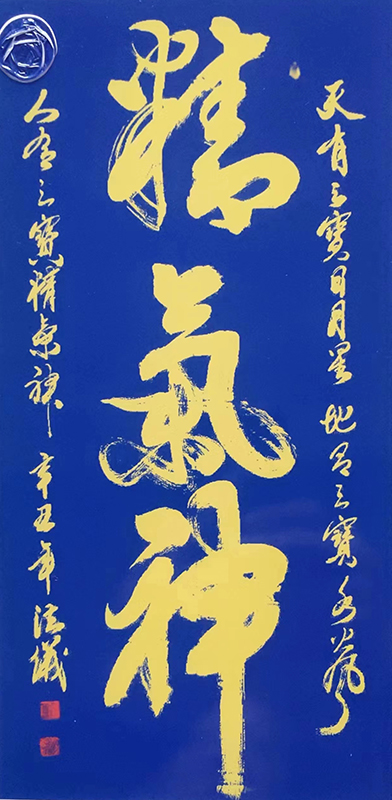 天有三寶日月星地有三寶水火風
精氣神
人有三寶精氣神辛丑年法儀